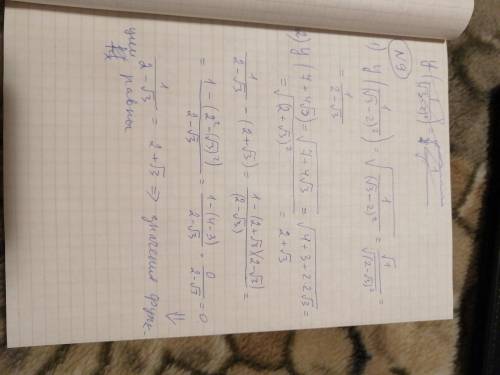 №9
1) y(1/(√3-2)²) = √(1/(√3-2)²) = √1/√(2-√3)² =
= 1/(2-√3)
2) y(7+4√3) = √(7+4√3) = √(4+3+2·2√3) =
= √(2+√3)² = 2+√3
1/(2-√3) - (2+√3) = (1-(2+√3)(2-√3))/(2-√3) =
= (1-(2²-(√3)²))/(2-√3) = (1-(4-3))/(2-√3) = 0/(2-√3) = 0
⇓
1/(2-√3) = 2+√3 ⇒ значения функ-
ции равны